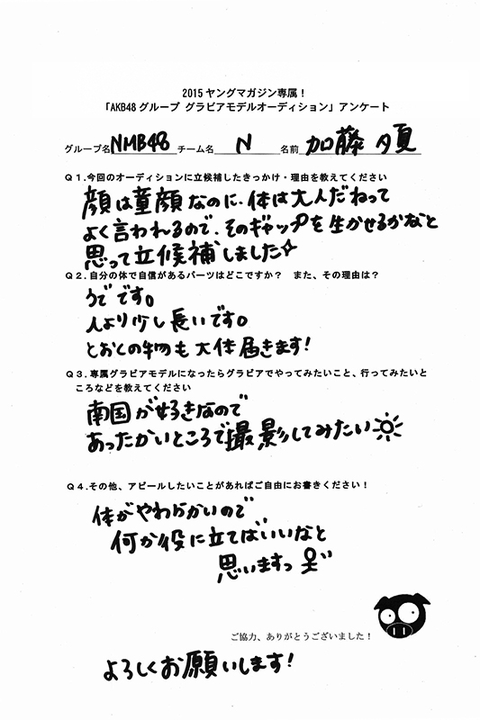 2015 ヤングマガジン専属！
「AKB48 グループ グラビアモデルオーディション」アンケート
グループ名 NMB48 チーム名 N 名前 加藤夕夏
Q1.今回のオーディションに立候補したきっかけ・理由を教えてください
顔は童顔なのに、体は大人だねって
よく言われるので、そのギャップを生かせるかなと
思って立候補しました☆
Q2.自分の体で自信があるパーツはどこですか？ また、その理由は？
うでです。
人より少し長いです。
とおくの物も大体届きます!
Q3.専属グラビアモデルになったらグラビアでやってみたいこと、行ってみたいと
ころなどを教えてください
南国が好きなので
あったかいところで撮影してみたい☀
Q4.その他、アピールしたいことがあればご自由にお書きください！
体がやわらかいので
何か役に立てばいいなと
思いますっ
ご協力、ありがとうございました！
よろしくお願いします!